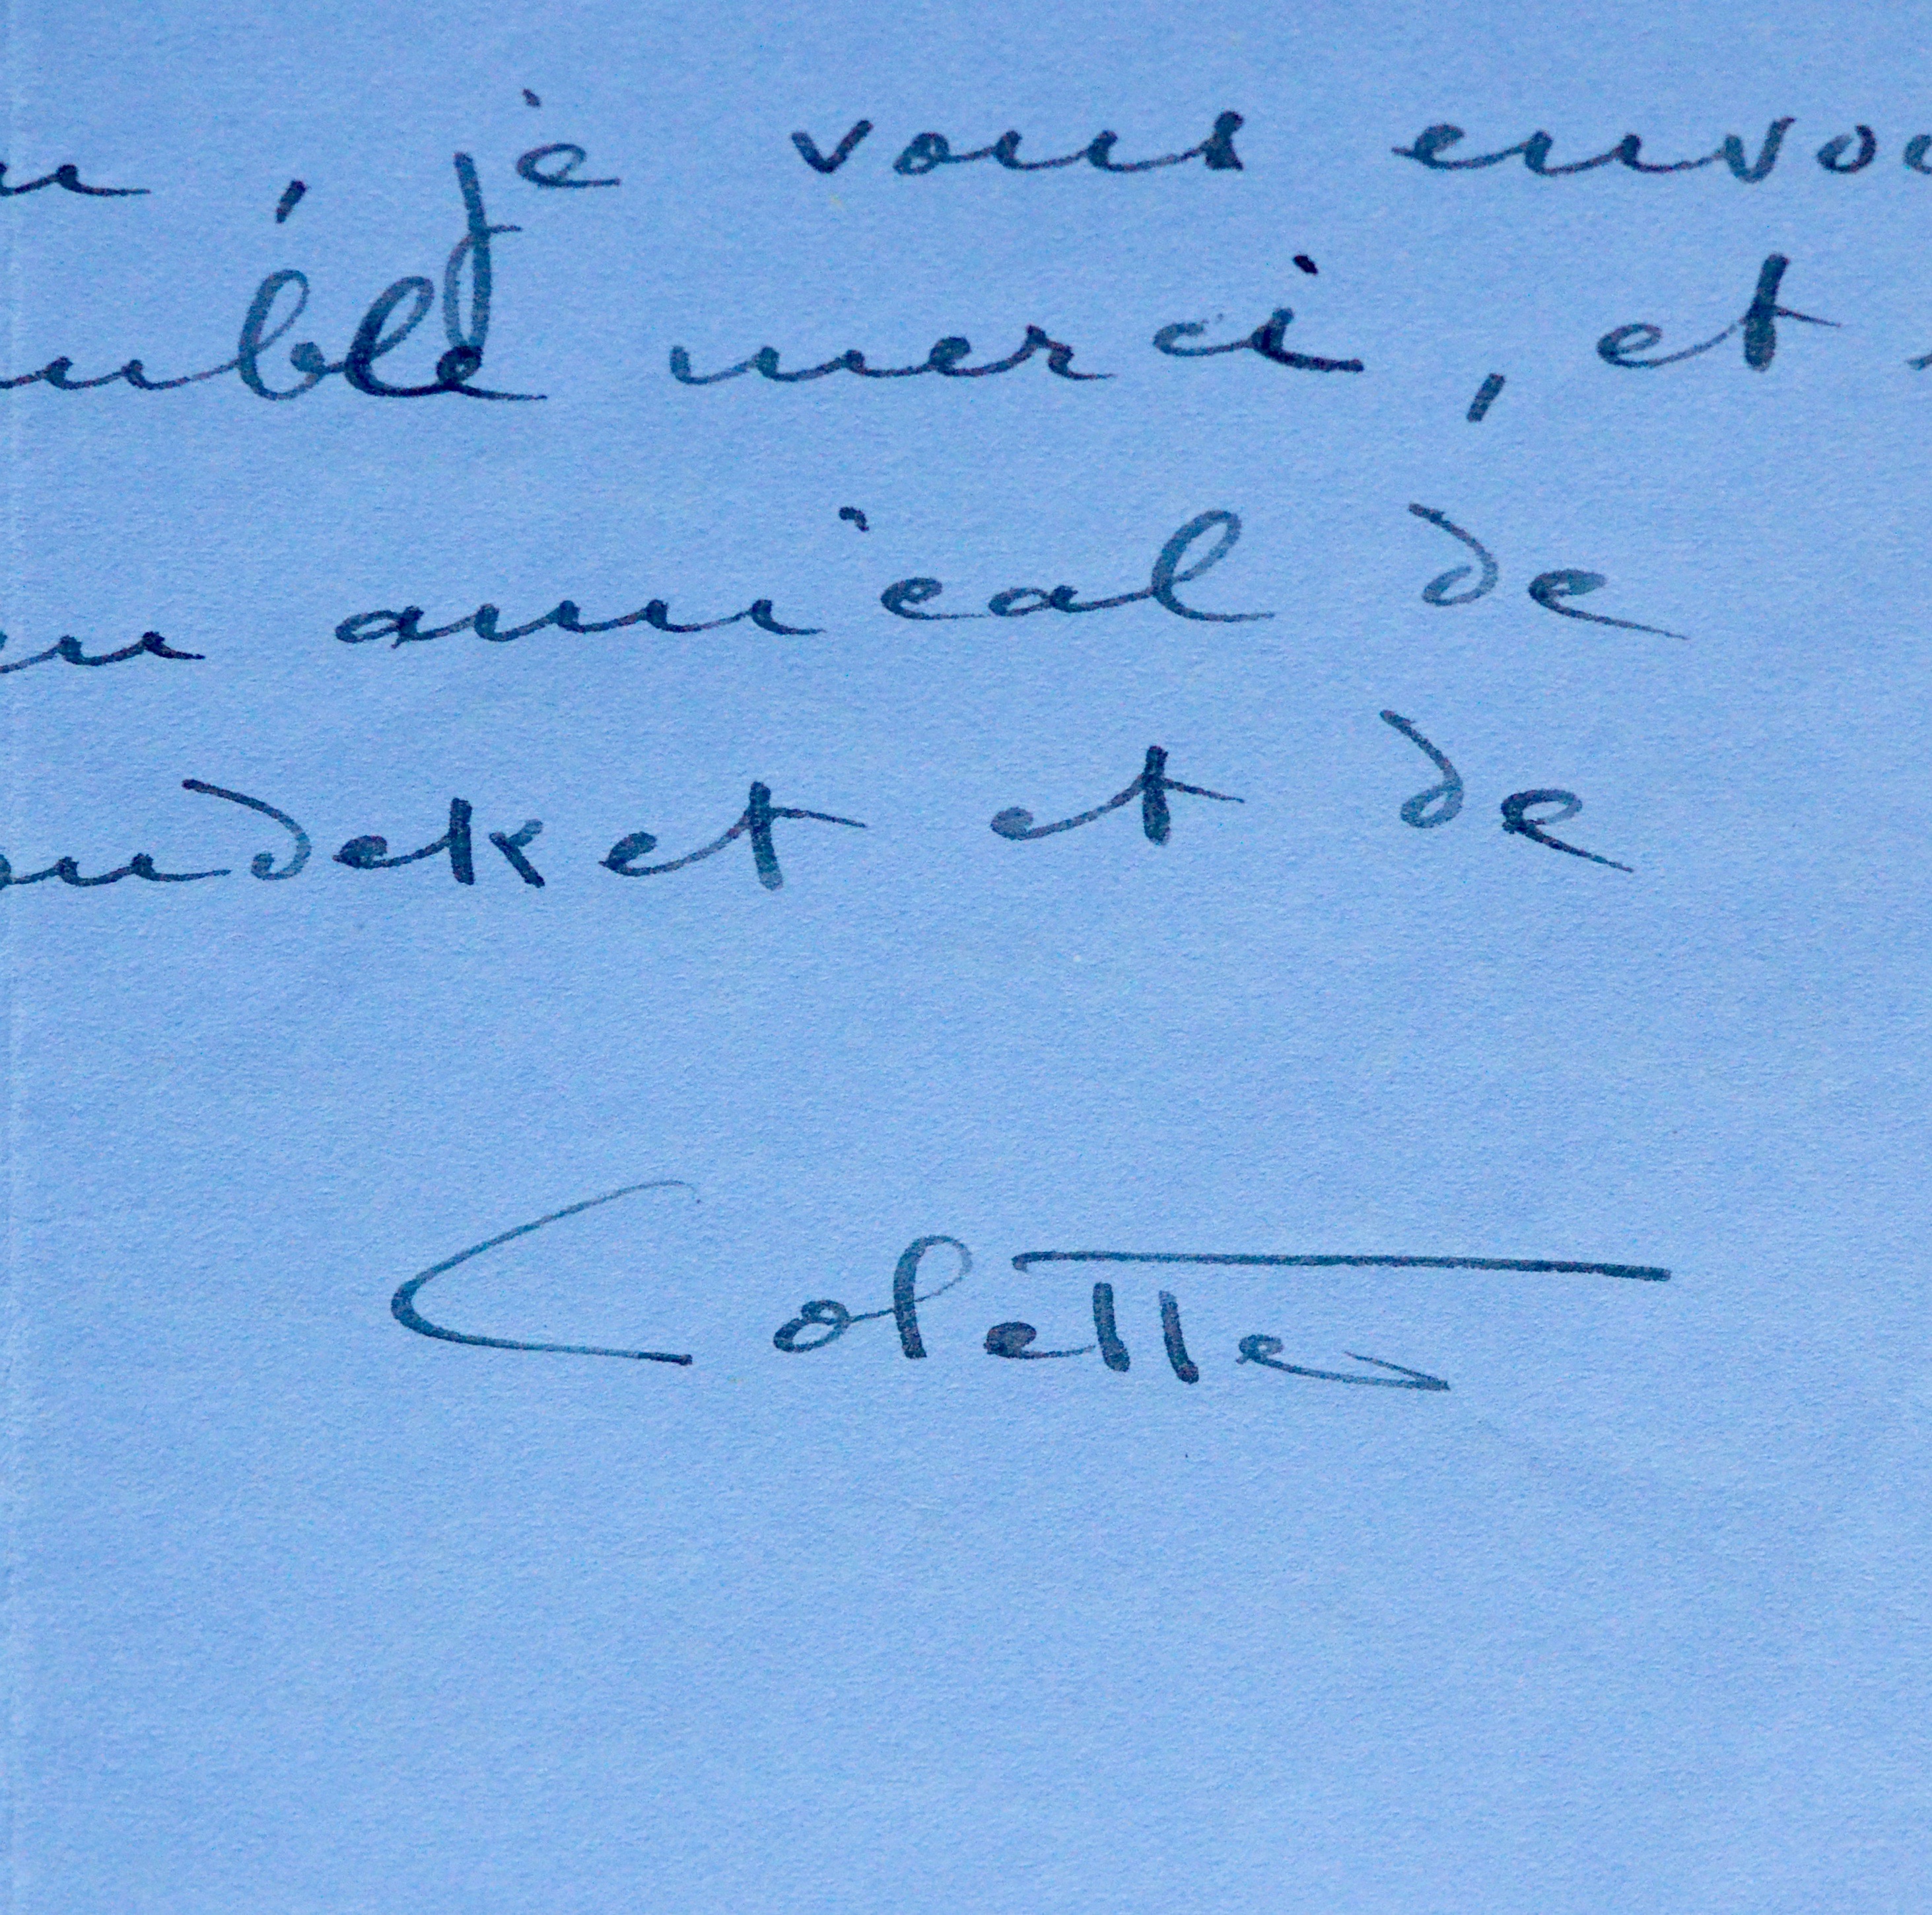 , je vous envoi
umble merci, et
amical de
oudeket et de
Colette